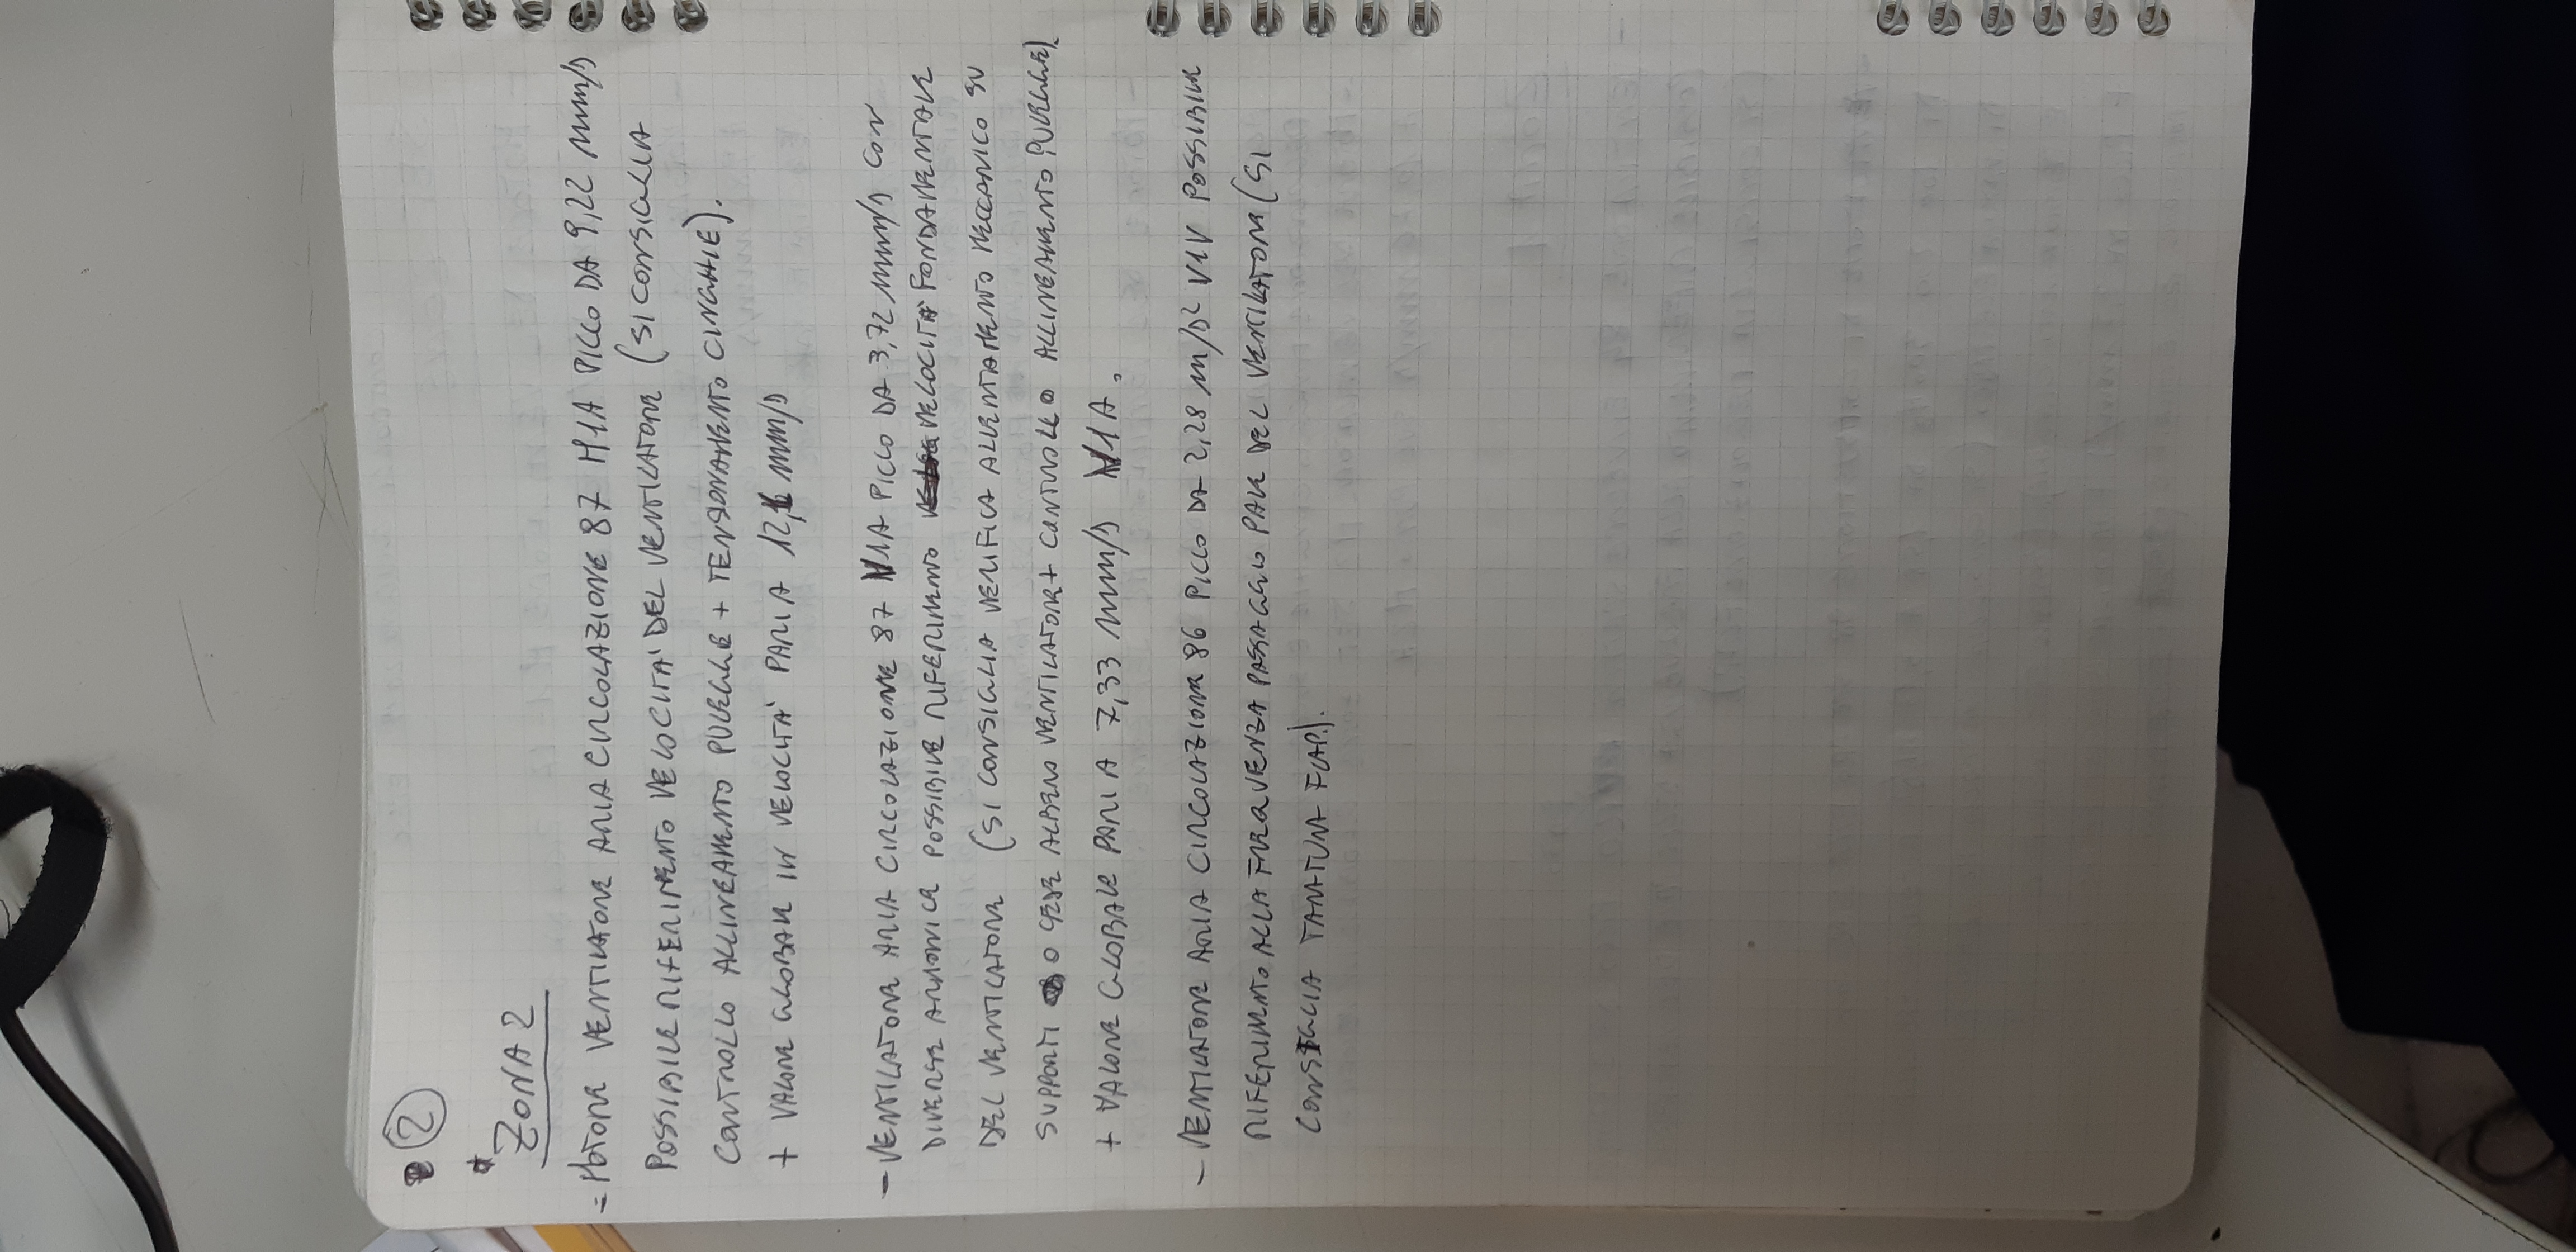 2
* ZONA 2
- MOTORE VENTILATORE ARIA CIRCOLAZIONE 87 M1A PICCO DA 9,22 mm/s
POSSIBILE RIFERIMENTO VELOCITA' DEL VENTILATORE (SI CONSIGLIA
CONTROLLO ALLINEAMENTO PULEGGE + TENSIONAMENTO CINGHIE).
+ VALORE GLOBALE IN VELOCITA' PARI A 12,1 mm/s
- VENTILATORE ARIA CIRCOLAZIONE 87 V1A PICCO DA 3,72 mm/s CON
DIVERSE ARMONICHE POSSIBILE RIFERIMENTO VELOCITA' FONDAMENTALE
DEL VENTILATORE (SI CONSIGLIA VERIFICA ALLENTAMENTO MECCANICO SU
SUPPORTI O SEDE ALBERO VENTILATORE + CONTROLLO ALLINEAMENTO PULEGGE)
+ VALORE GLOBALE PARI A 7,33 mm/s V1A.
- VENTILATORE ARIA CIRCOLAZIONE 86 PICCO DA 2,28 m/s² V1V POSSIBILE
RIFERIMENTO ALLA FREQUENZA PASSAGGIO PALE DEL VENTILATORE (SI
CONSIGLIA TARATURA FLAP).